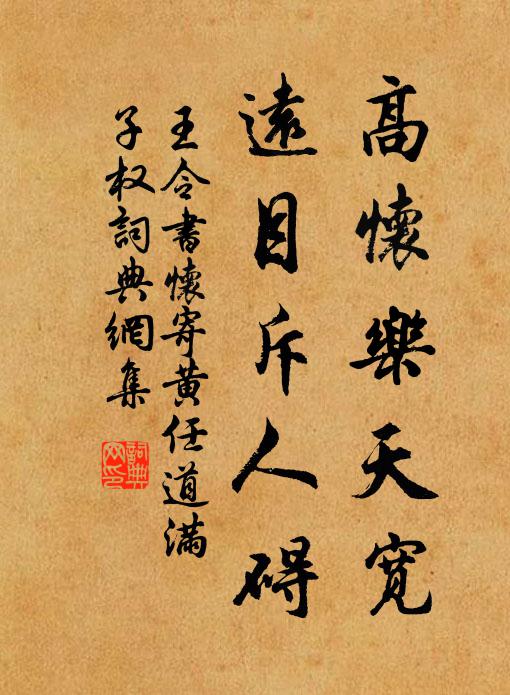 高懷樂天寬
遠目斥人碍
王令書懷寄黄任道滿
子权詞典網集
詞典
网印